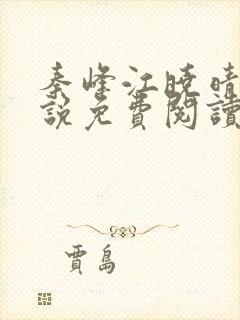 秦峰江曉晴
説免費閱讀
賈島